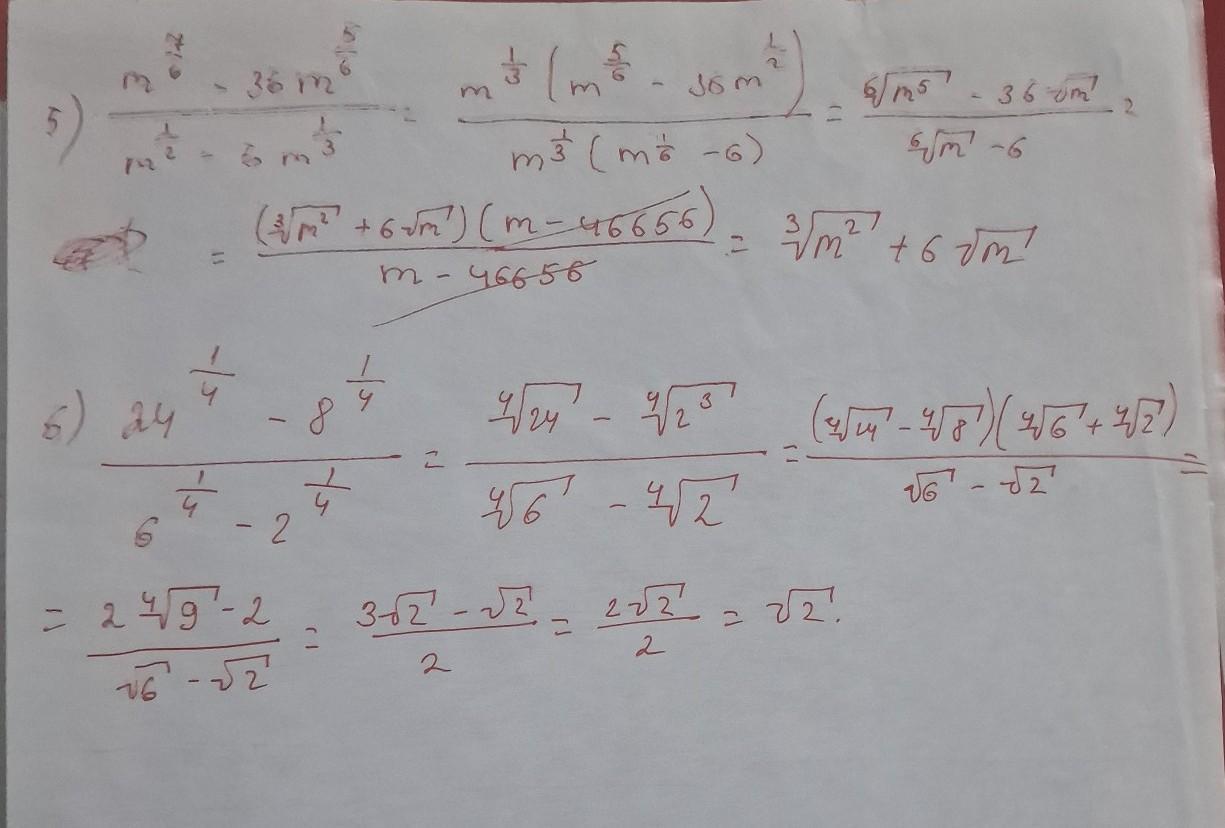 5) \frac{m^{\frac{7}{6}} - 36 m^{\frac{5}{6}}}{m^{\frac{1}{2}} - 6 m^{\frac{1}{3}}} = \frac{m^{\frac{1}{3}} (m^{\frac{5}{6}} - 36 m^{\frac{1}{2}})}{m^{\frac{1}{3}} (m^{\frac{1}{6}} - 6)} = \frac{\sqrt[6]{m^5} - 36 \sqrt{m}}{\sqrt[6]{m} - 6} =
= \frac{(\sqrt[3]{m^2} + 6 \sqrt{m})(m - 46656)}{m - 46656} = \sqrt[3]{m^2} + 6 \sqrt{m}
6) \frac{24^{\frac{1}{4}} - 8^{\frac{1}{4}}}{6^{\frac{1}{4}} - 2^{\frac{1}{4}}} = \frac{\sqrt[4]{24} - \sqrt[4]{2^3}}{\sqrt[4]{6} - \sqrt[4]{2}} = \frac{(\sqrt[4]{24} - \sqrt[4]{8})(\sqrt[4]{6} + \sqrt[4]{2})}{\sqrt{6} - \sqrt{2}} =
= \frac{2 \sqrt[4]{9} - 2}{\sqrt{6} - \sqrt{2}} = \frac{3\sqrt{2} - \sqrt{2}}{2} = \frac{2\sqrt{2}}{2} = \sqrt{2}.